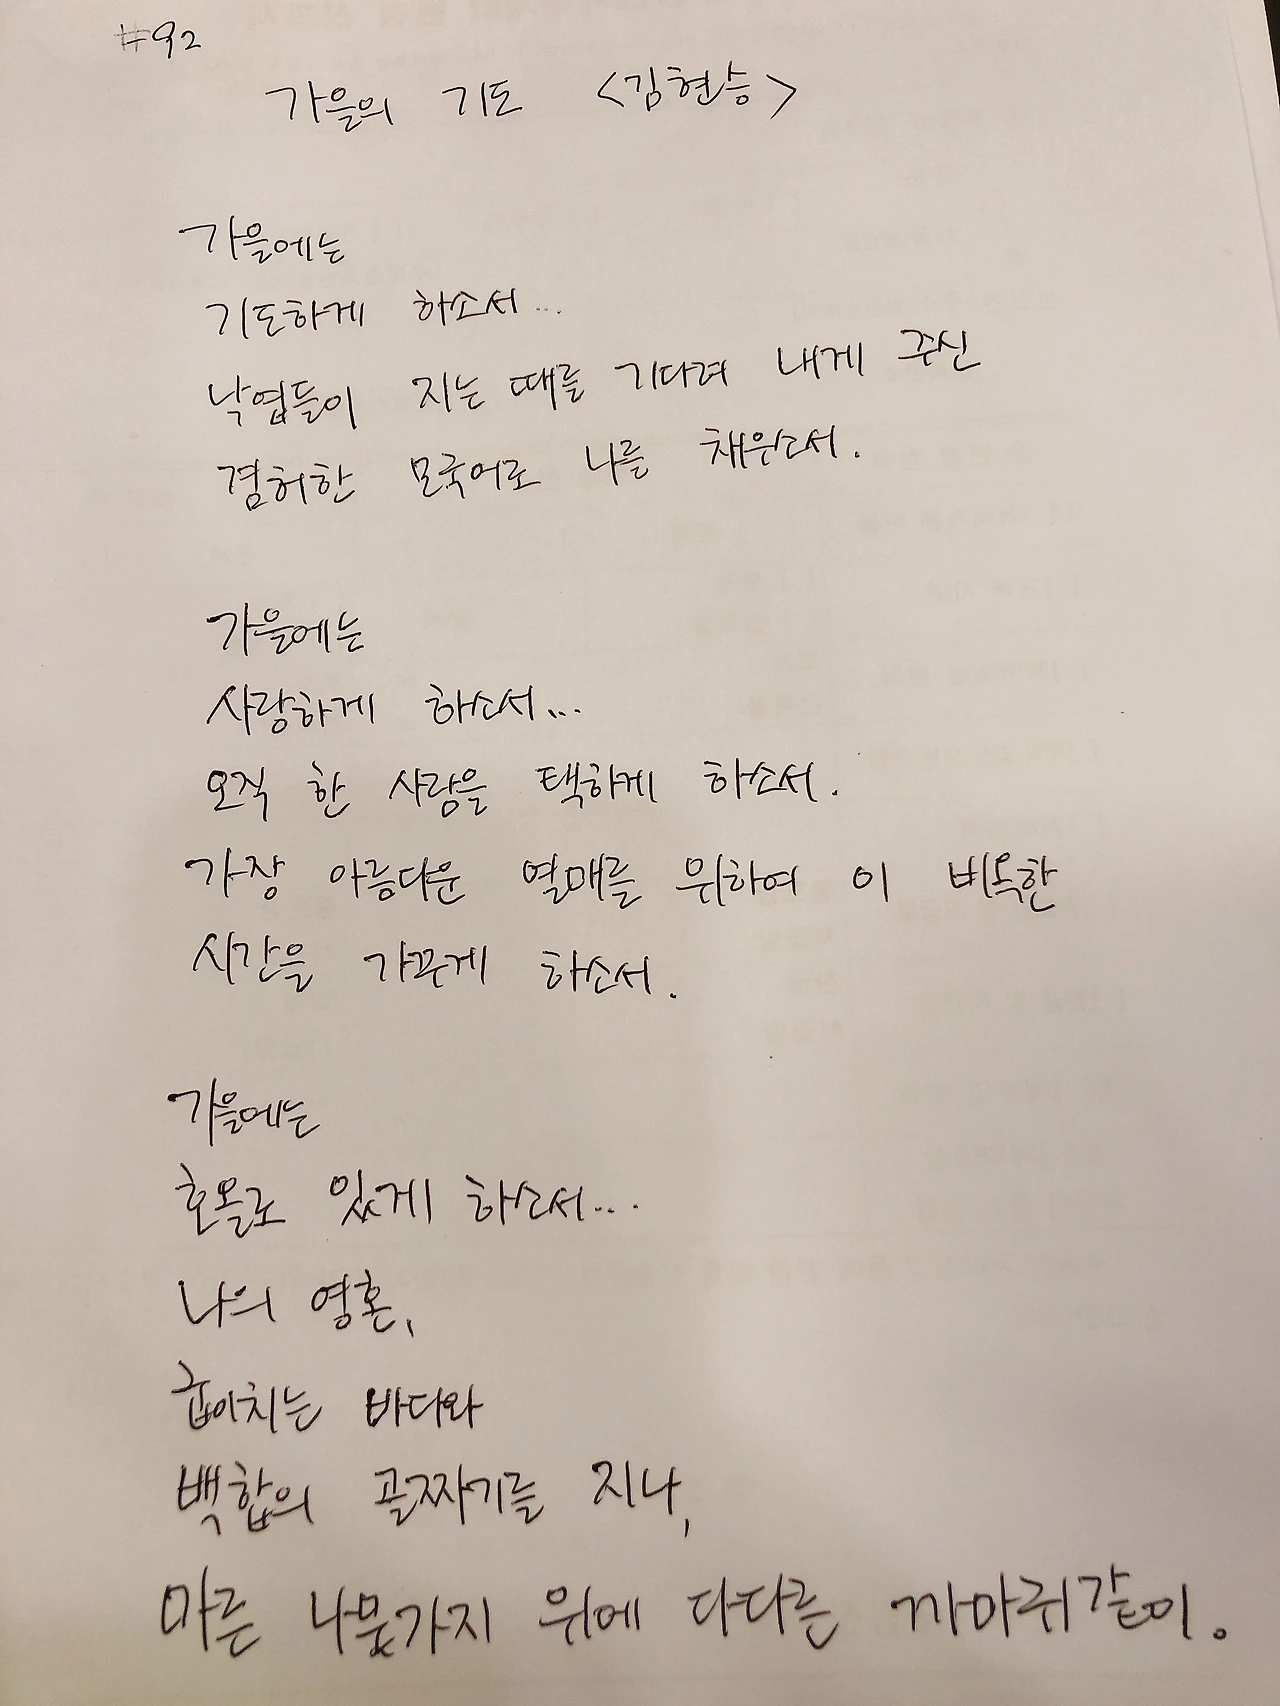 #92
가을의 기도 <김현승>
가을에는
기도하게 하소서...
낙엽들이 지는 때를 기다려 내게 주신
겸허한 모국어로 나를 채우소서.
가을에는
사랑하게 하소서...
오직 한 사람을 택하게 하소서.
가장 아름다운 열매를 위하여 이 비옥한
시간을 가꾸게 하소서.
가을에는
호올로 있게 하소서...
나의 영혼,
굽이치는 바다와
백합의 골짜기를 지나,
마른 나뭇가지 위에 다다른 까마귀같이.